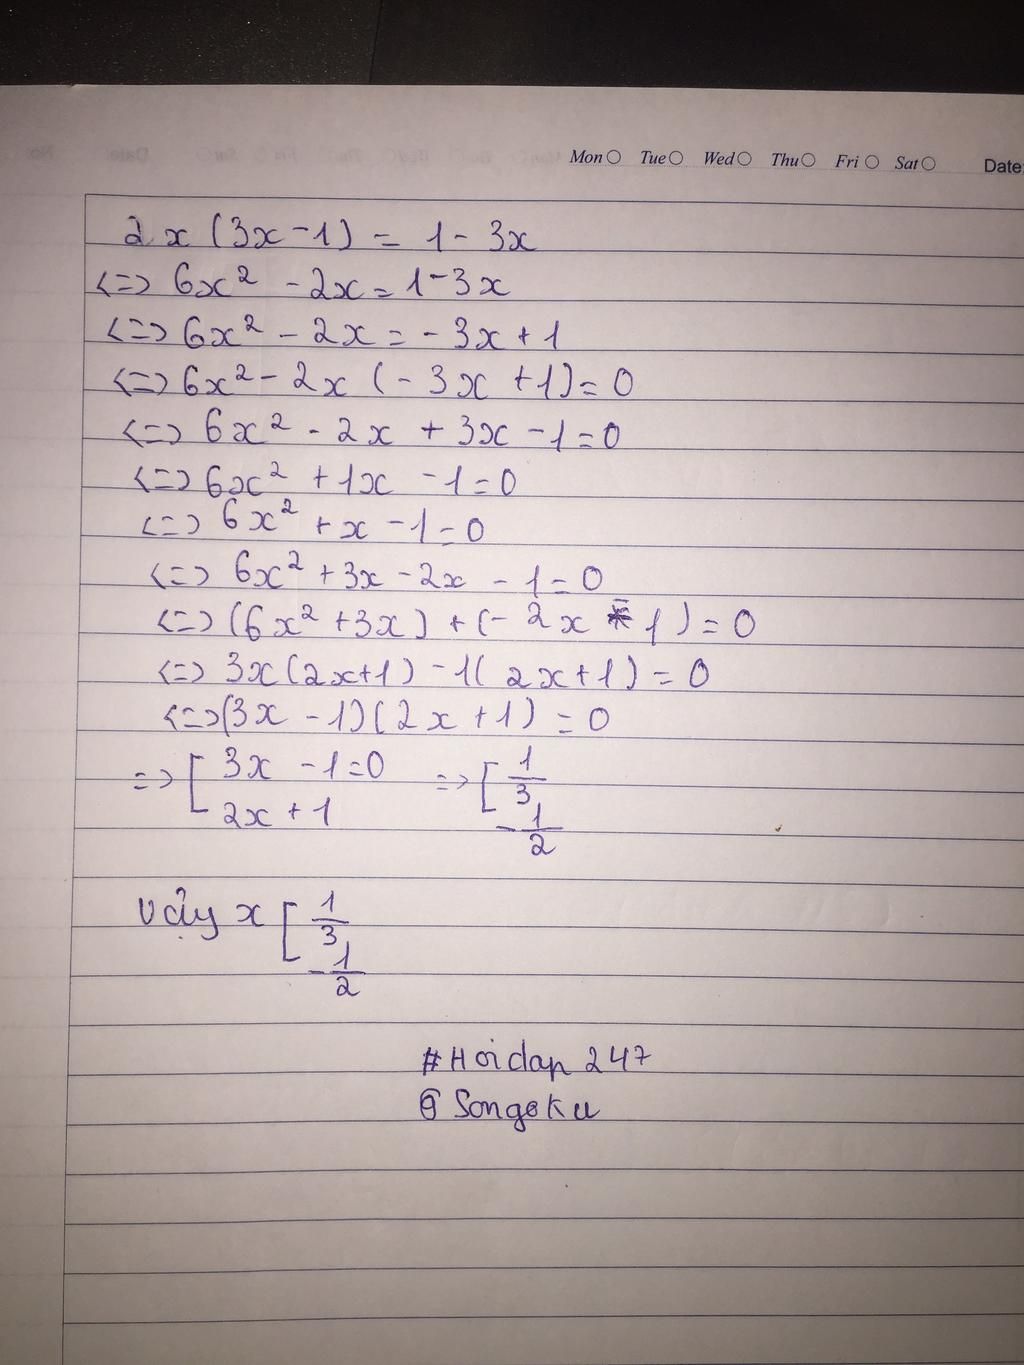 Mon Tue Wed Thu Fri Sat Date:
2x(3x-1) = 1-3x
<=> 6x² - 2x = 1-3x
<=> 6x² - 2x = -3x+1
<=> 6x² - 2x (-3x+1) = 0
<=> 6x² - 2x + 3x - 1 = 0
<=> 6x² + 1x - 1 = 0
<=> 6x² + x - 1 = 0
<=> 6x² + 3x - 2x - 1 = 0
<=> (6x² + 3x) + (- 2x - 1) = 0
<=> 3x(2x+1) - 1(2x+1) = 0
<=> (3x - 1)(2x+1) = 0
=> [ 3x - 1 = 0 => [ 1/3
2x + 1 -1/2
Vậy x [ 1/3
-1/2
#Hoidap247
@Songoku